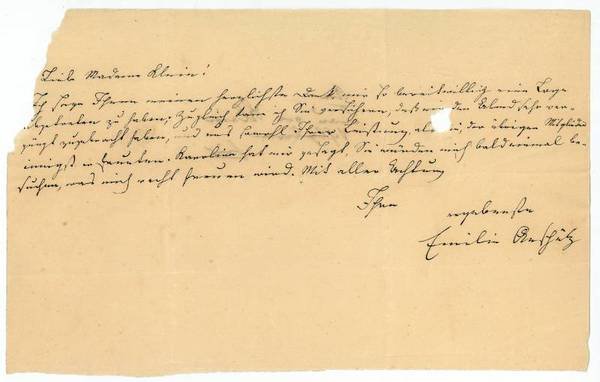 Liebe Madame Klein!
Ich sage Ihnen meinen herzlichsten Dank mir so bereitwillig eine Loge
abgetreten zu haben; zugleich kann ich Sie versichern, daß wir den Abend sehr ver-
gnügt zugebracht haben, und uns sowohl Ihrer Leistung, als der übrigen Mitglieder
innigst erfreuten. Karoline hat mir gesagt, Sie würden mich bald einmal be-
suchen, was mich recht freuen wird. Mit aller Achtung
Ihre
ergebenste
Emilie Anschütz